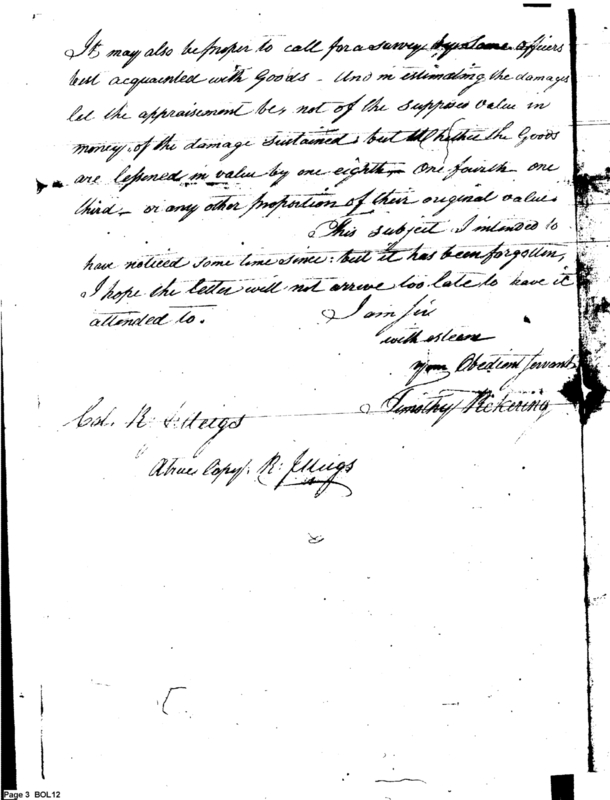 It may also be proper to call for a survey by some officers
best acquainted with Goods - And in estimating the damages
let the appraisement be, not of the supposed value in
money, of the damage sustained, but Whether the Goods
are lessened in value by one eighth - One fourth - one
third - or any other proportion of their original value.
This subject I intended to
have noticed some time since: but it has been forgotten,
I hope the letter will not arrive too late to have it
attended to.
I am Sir
with esteem
your Obedient Servant
Timothy Pickering
Col. R. J. Meigs
A true Copy. R: J Meigs
Page 3 BOL12